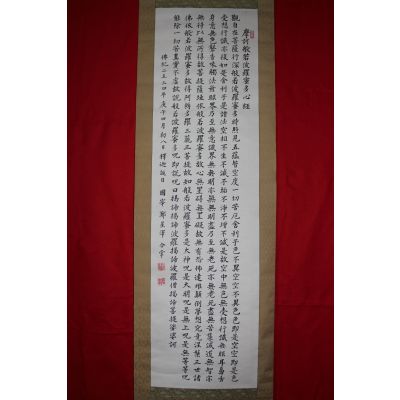 摩訶般若波羅蜜多心經
觀自在菩薩行深般若波羅蜜多時照見五蘊皆空度一切苦厄舍利子色不異空空不異色色即是空空即是色
受想行識亦復如是舍利子是諸法空相不生不滅不垢不淨不增不減是故空中無色無受想行識無眼耳鼻舌
身意無色聲香味觸法無眼界乃至無意識界無無明亦無無明盡乃至無老死亦無老死盡無苦集滅道無智亦
無得以無所得故菩提薩埵依般若波羅蜜多故心無罣礙無罣礙故無有恐怖遠離顚倒夢想究竟涅槃三世諸
佛依般若波羅蜜多故得阿耨多羅三藐三菩提故知般若波羅蜜多是大神呪是大明呪是無上呪是無等等呪
能除一切苦眞實不虛故說般若波羅蜜多呪即說呪曰揭諦揭諦波羅揭諦波羅僧揭諦菩提娑婆訶
佛紀二五三四年庚午四月初八日釋迦誕日 國 鄭星 合掌